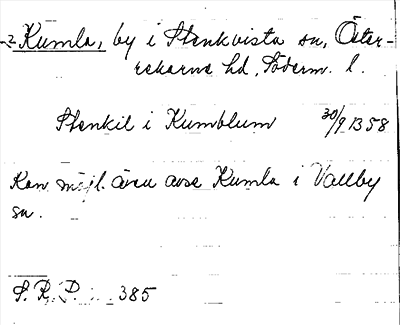 2 Kumla, by i Stenkvista sn, Öster-
rekarne hd, Söderm. l.
Stenkil i Kumblum 30/9 1358
Kan möjl. även avse Kumla i Vallby
sn.
S. R. P. 385